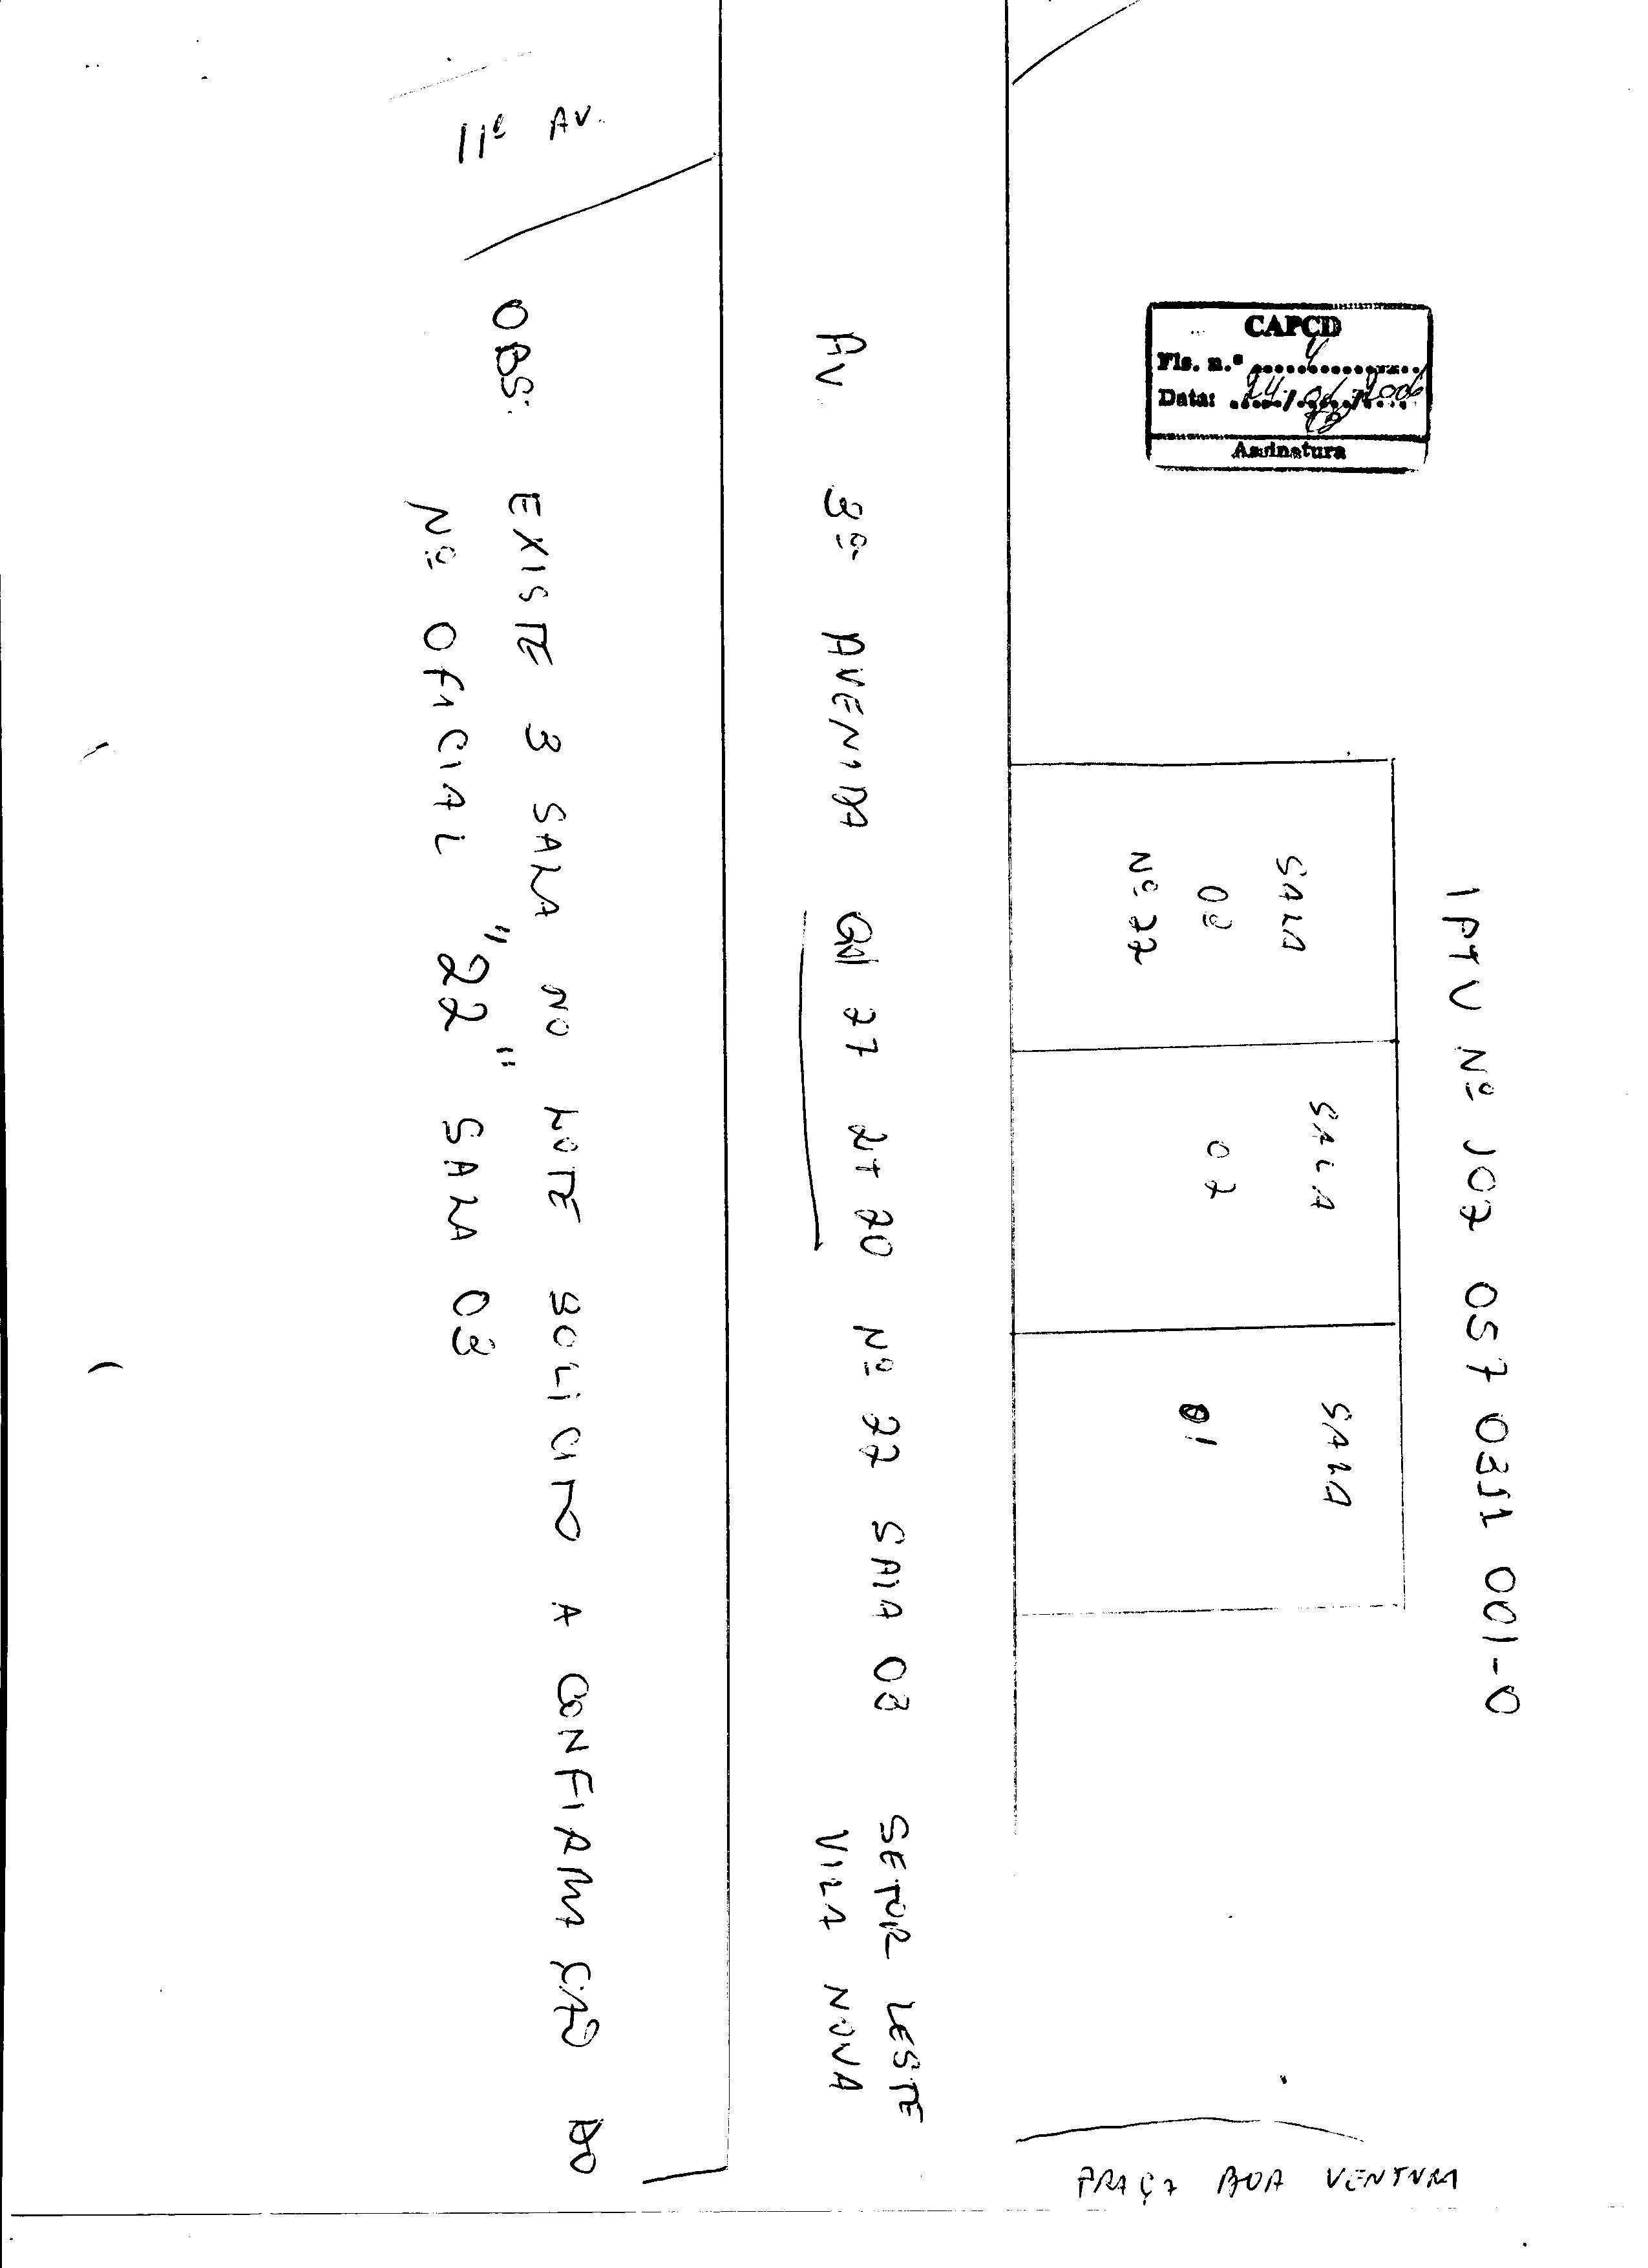 IPTU Nº 107 057 0351 001-0
SALA
03
Nº 22
SALA
02
SALA
01
AV. 3ª AVENIDA QD 77 LT 20 Nº 22 SALA 03 SETOR LESTE
VILA NOVA
OBS: EXISTE 3 SALA NO LOTE SOLICITO A CONFIRMAÇÃO DO
Nº OFICIAL "22" SALA 03
11ª AV.
PRAÇA BOA VENTURA
CAPCD
Fls. n.º 4
Data: 24/ / 2006
Assinatura